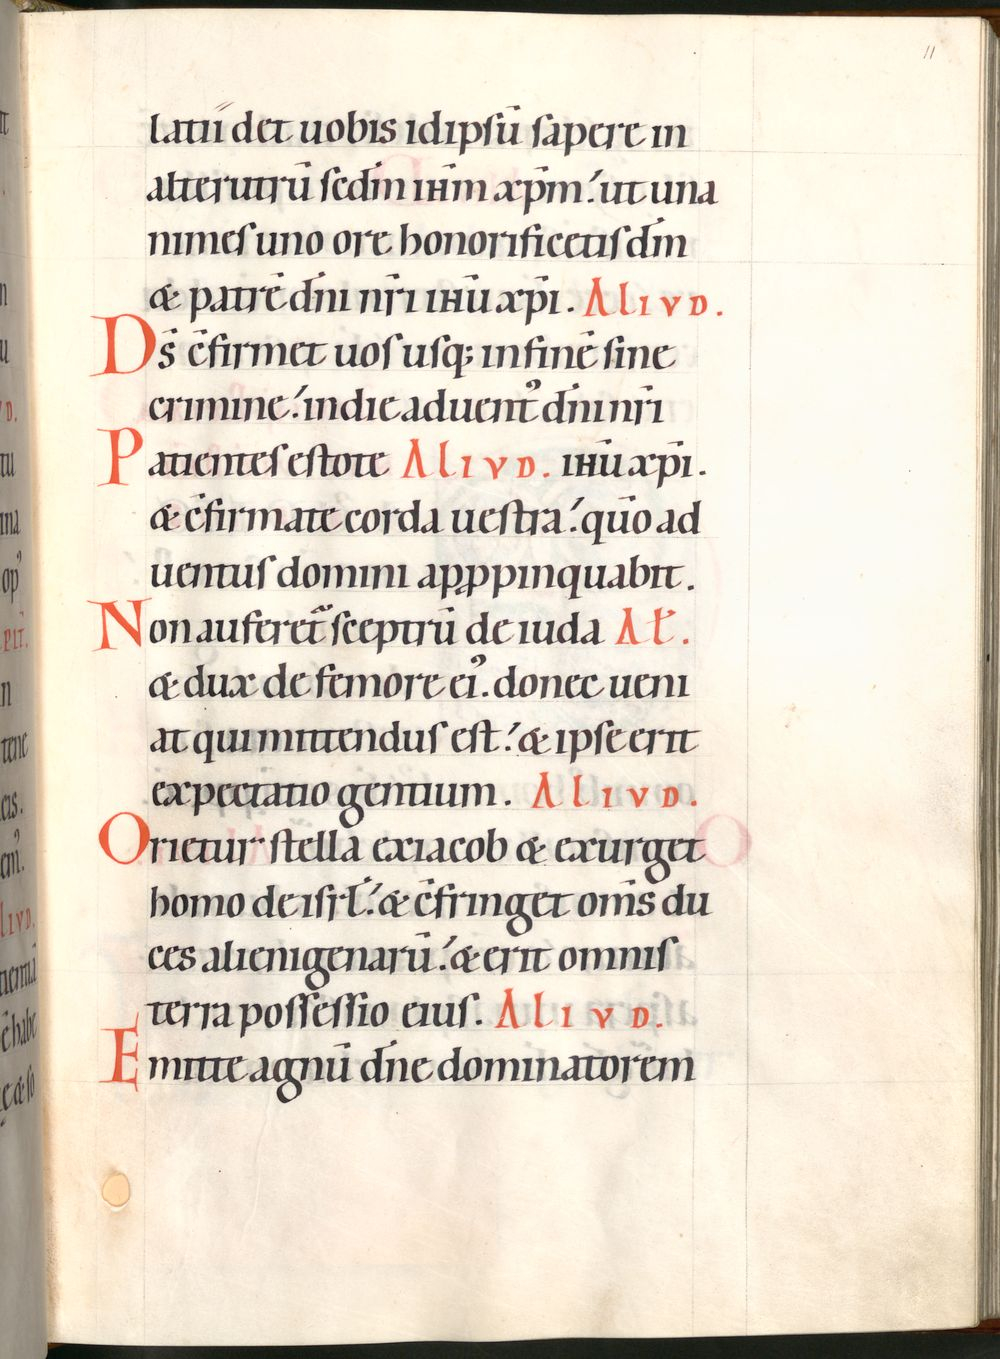 11
latii det uobis idipsū sapere in
alterutrū scdm̄ ihm̄ xp̄m ut una
nimes uno ore honorificetis dm̄
& patrē dn̄i nr̄i ihū xp̄i. ALIVD.
Ds̄ c̄firmet uos usq; in finē sine
crimine in die aduent᾽ dn̄i nr̄i
Patientes estote ALIVD. ihū xp̄i.
& c̄firmate corda uestra qūo ad
uentus domini appropinquabit.
Non auferet᷑ sceptrū de iuda AŁ.
& dux de femore ei᾽. donec ueni
at qui mittendus est & ipse erit
expectatio gentium. ALIVD.
Orietur stella ex iacob & exurget
homo de isrł & c̄fringet om̄s du
ces alienigenarū & erit omnis
terra possessio eius. ALIVD.
Emitte agnū dn̄e dominatorem